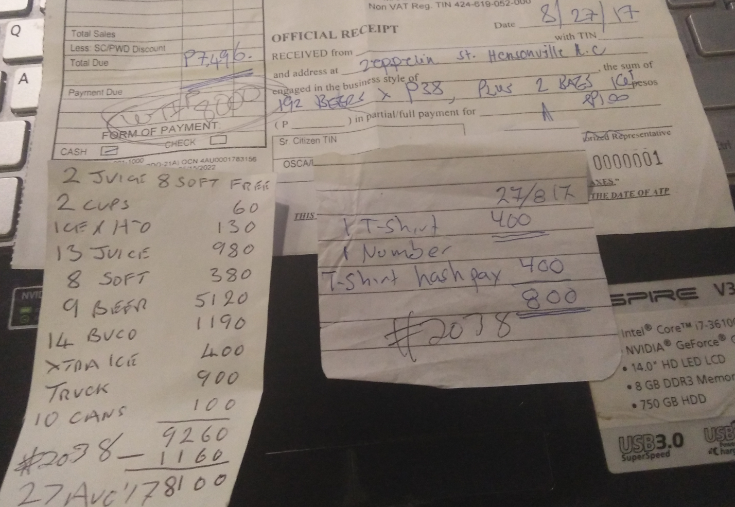 Non VAT Reg. TIN 424-619-052-000
OFFICIAL RECEIPT
Date 8/27/17
Total Sales
Less: SC/PWD Discount
Total Due ₱7,496.
Payment Due
8000
FORM OF PAYMENT
CASH
CHECK
RECEIVED from
with TIN
and address at Zeppelin St. Hensonville A.C
engaged in the business style of , the sum of
192 BEERS x ₱38, PLUS 2 BAGS ICE pesos
(P ) in partial/full payment for
Sr. Citizen TIN
Representative
0000001
THIS
THE DATE OF ATP
2 JUICE 8 SOFT FREE
2 CUPS 60
ICE X HTO 130
13 JUICE 980
8 SOFT 380
9 BEER 5120
14 BUCO 1190
XTRA ICE 400
TRUCK 900
10 CANS 100
9260
#2038 - 1160
27 AUG '17 8100
27/8/17
1 T-shirt 400
1 Number
T-shirt hash pay 400
800
#2038
Q
A
SPIRE V3
Intel® Core™ i7-3610
NVIDIA® GeForce®
• 14.0" HD LED LCD
• 8 GB DDR3 Memor
• 750 GB HDD
USB3.0
SuperSpeed